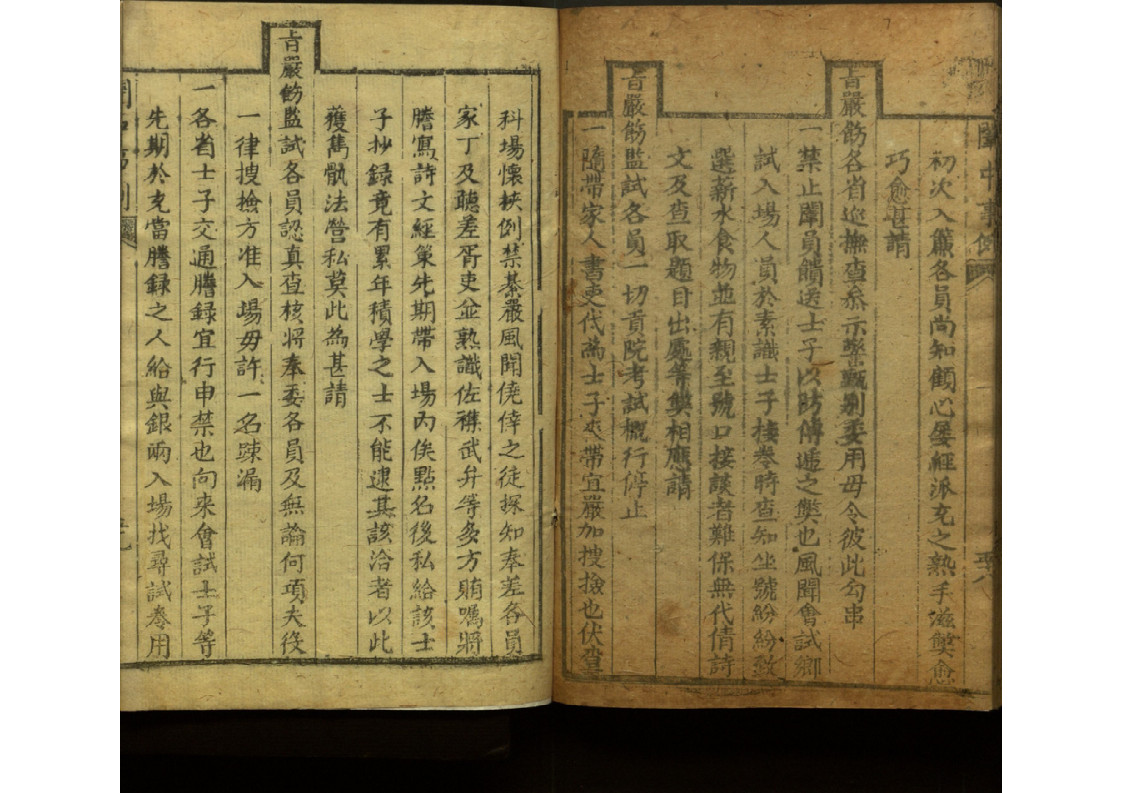 闈中事例
初次入簾各員尚知顧心屡經派充之熟手滋獘愈
巧愈甚請
㫖嚴飭各省巡撫查叅示舉甄别委用毋令彼此勾串
一禁止闈員饋送士子以防傳遞之獘也風聞會試鄉
試入場人員於素識士子接卷時查知坐號紛紛致
選薪水食物並有親至號口接談者難保無代倩詩
文及查取題目出處等獘相應請
㫖嚴飭監試各員一切貢院考試概行停止
一隨帶家人書吏代為士子夾帶宜嚴加搜撿也伏查
科場懷挾例禁綦嚴風聞僥倖之徒探知奉差各員
家丁及聽差胥吏並熟識佐襍武弁等多方賄嘱將
謄寫詩文經策先期帶入場内俟點名後私給該士
子抄録竟有累年積學之士不能逮其該洽者以此
獲雋骩法營私莫此為甚請
㫖嚴飭監試各員認真查核將奉委各員及無論何項夫役
一律搜撿方准入場毋許一名疎漏
一各省士子交通謄録宜行申禁也向來會試士子等
先期於充當謄録之人給與銀兩入場找尋試卷用